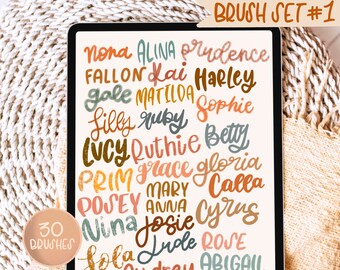 BRUSH SET #1
nona ALINA prudence
FALLON Kai Harley
gale MATILDA Sophie
Lilly ruby
LUCY Ruthie Betty
PRIM grace gloria
POSEY MARY Calla
Nina ANNA Cyrus
Josie
Lola Jude ROSE
Audrey ABIGAIL
30
BRUSHES